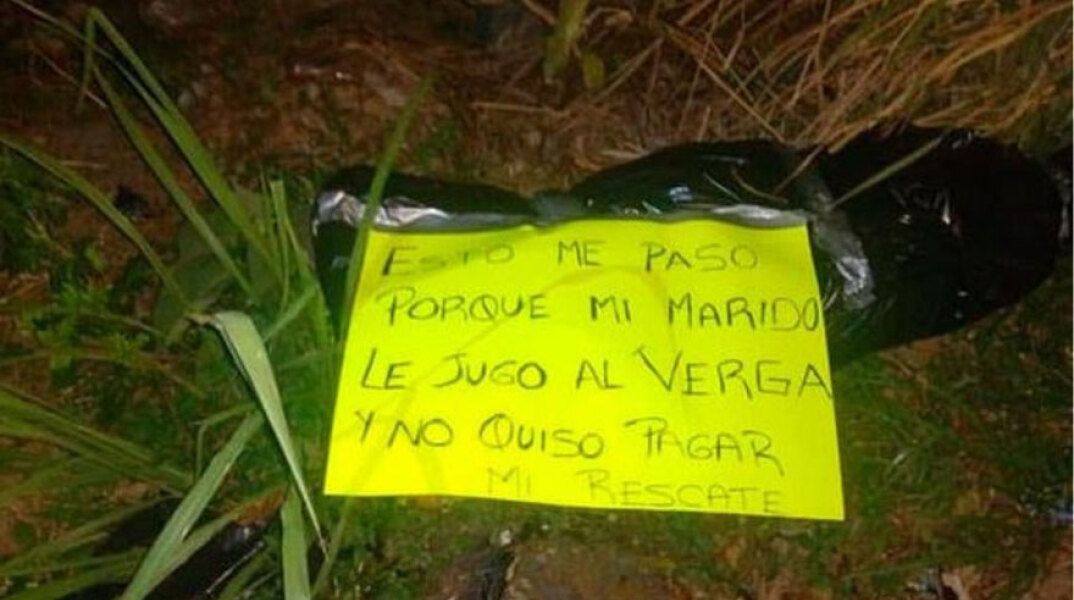 ESTO ME PASO
PORQUE MI MARIDO
LE JUGO AL VERGA
Y NO QUISO PAGAR
MI RESCATE